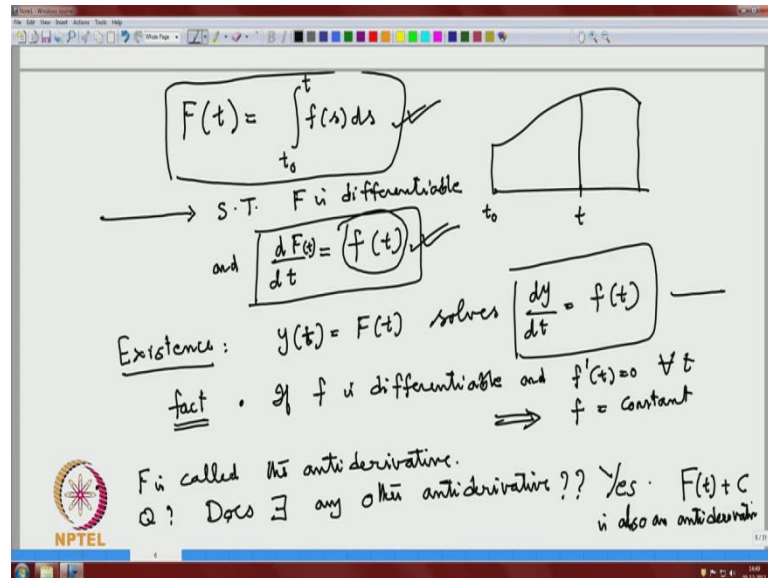 Note1 - Windows Journal
File Edit View Insert Actions Tools Help
Whole Page
F(t) = ∫_{t₀}^{t} f(s) ds
t₀ t
S.T. F is differentiable
and dF(t)/dt = f(t)
Existence: y(t) = F(t) solves dy/dt = f(t)
fact • If f is differentiable and f'(t)=0 ∀ t
⟹ f = constant
F is called the antiderivative.
Q? Does ∃ any other antiderivative?? Yes. F(t) + C
is also an antiderivative
NPTEL
6